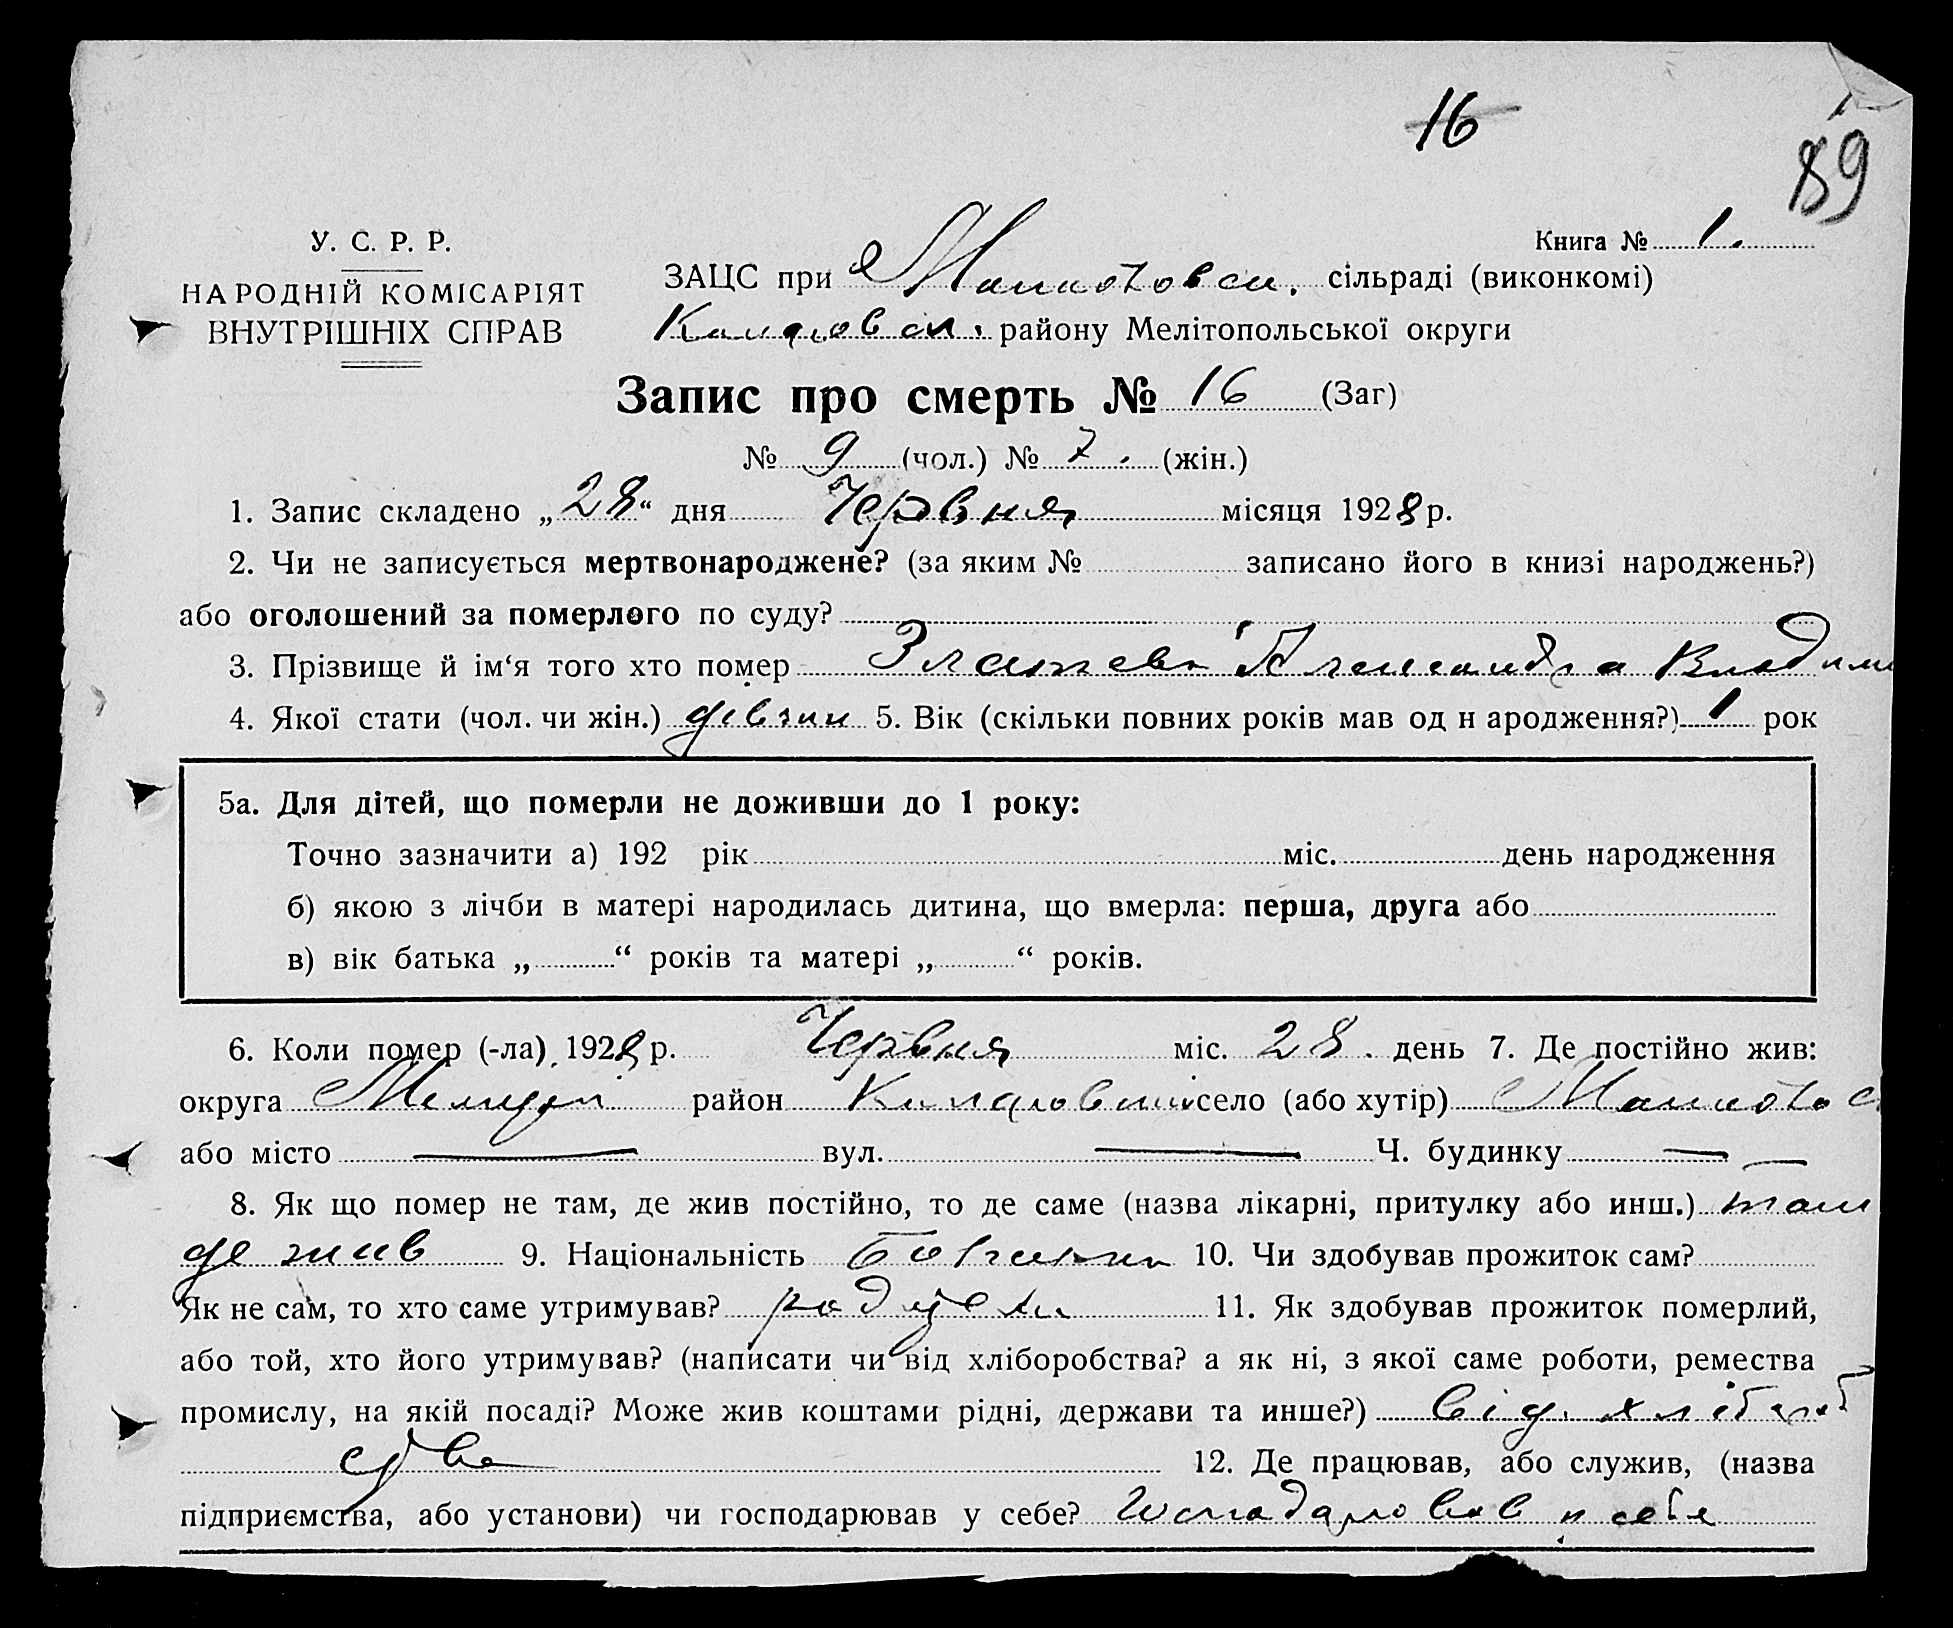 16
89
У. С. Р. Р.
НАРОДНІЙ КОМІСАРІЯТ
ВНУТРІШНІХ СПРАВ
Книга № 1.
ЗАЦС при сільраді (виконкомі)
району Мелітопольської округи
Запис про смерть № 16 (Заг)
№ 9 (чол.) № 7. (жін.)
1. Запис складено „28“ дня Червня місяця 1928 р.
2. Чи не записується мертвонароджене? (за яким № записано його в книзі народжень?)
або оголошений за померлого по суду?
3. Прізвище й ім‘я того хто помер Александра Владими
4. Якої стати (чол. чи жін.) дівчин 5. Вік (скільки повних років мав од н ародження?) 1 рок
5а. Для дітей, що померли не доживши до 1 року:
Точно зазначити а) 192 рік міс. день народження
б) якою з лічби в матері народилась дитина, що вмерла: перша, друга або
в) вік батька „ “ років та матері „ “ років.
6. Коли помер (-ла) 1928 р. Червня міс. 28. день 7. Де постійно жив:
округа район село (або хутір)
або місто — вул. — Ч. будинку — —
8. Як що помер не там, де жив постійно, то де саме (назва лікарні, притулку або инш.) там
де жив 9. Національність 10. Чи здобував прожиток сам?
Як не сам, то хто саме утримував? родители 11. Як здобував прожиток померлий,
або той, хто його утримував? (написати чи від хліборобства? а як ні, з якої саме роботи, ремества
промислу, на якій посаді? Може жив коштами рідні, держави та инше?) від хлібороб
ства 12. Де працював, або служив, (назва
підприємства, або установи) чи господарював у себе? Господарював у себе